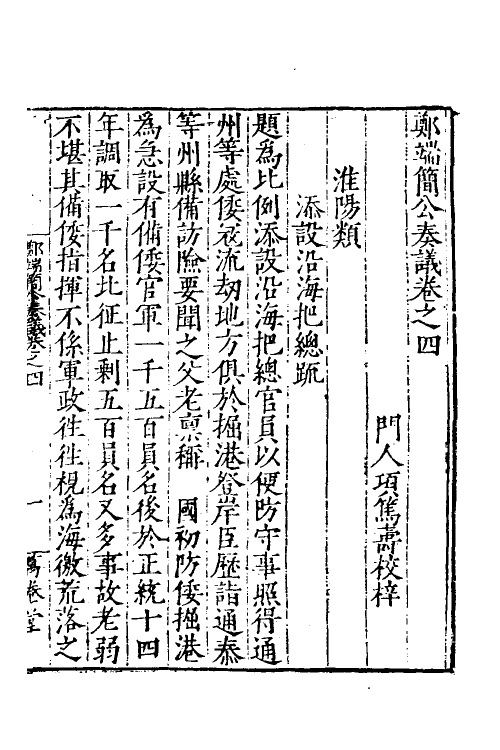 鄭端簡公奏議卷之四
門人項篤壽校梓
淮陽類
添設沿海把總䟽
題為比例添設沿海把總官員以便防守事照得通
州等處倭冦流刼地方俱於掘港登岸臣歷詣通泰
等州縣備訪險要聞之父老禀稱 國初防倭掘港
為急設有備倭官軍一千五百員名後於正統十四
年調取一千名比征止剩五百員名又多事故老弱
不堪其備倭指揮不係軍政徃徃視為海徼荒落之
鄭端簡公奏議卷之四 一 萬卷堂